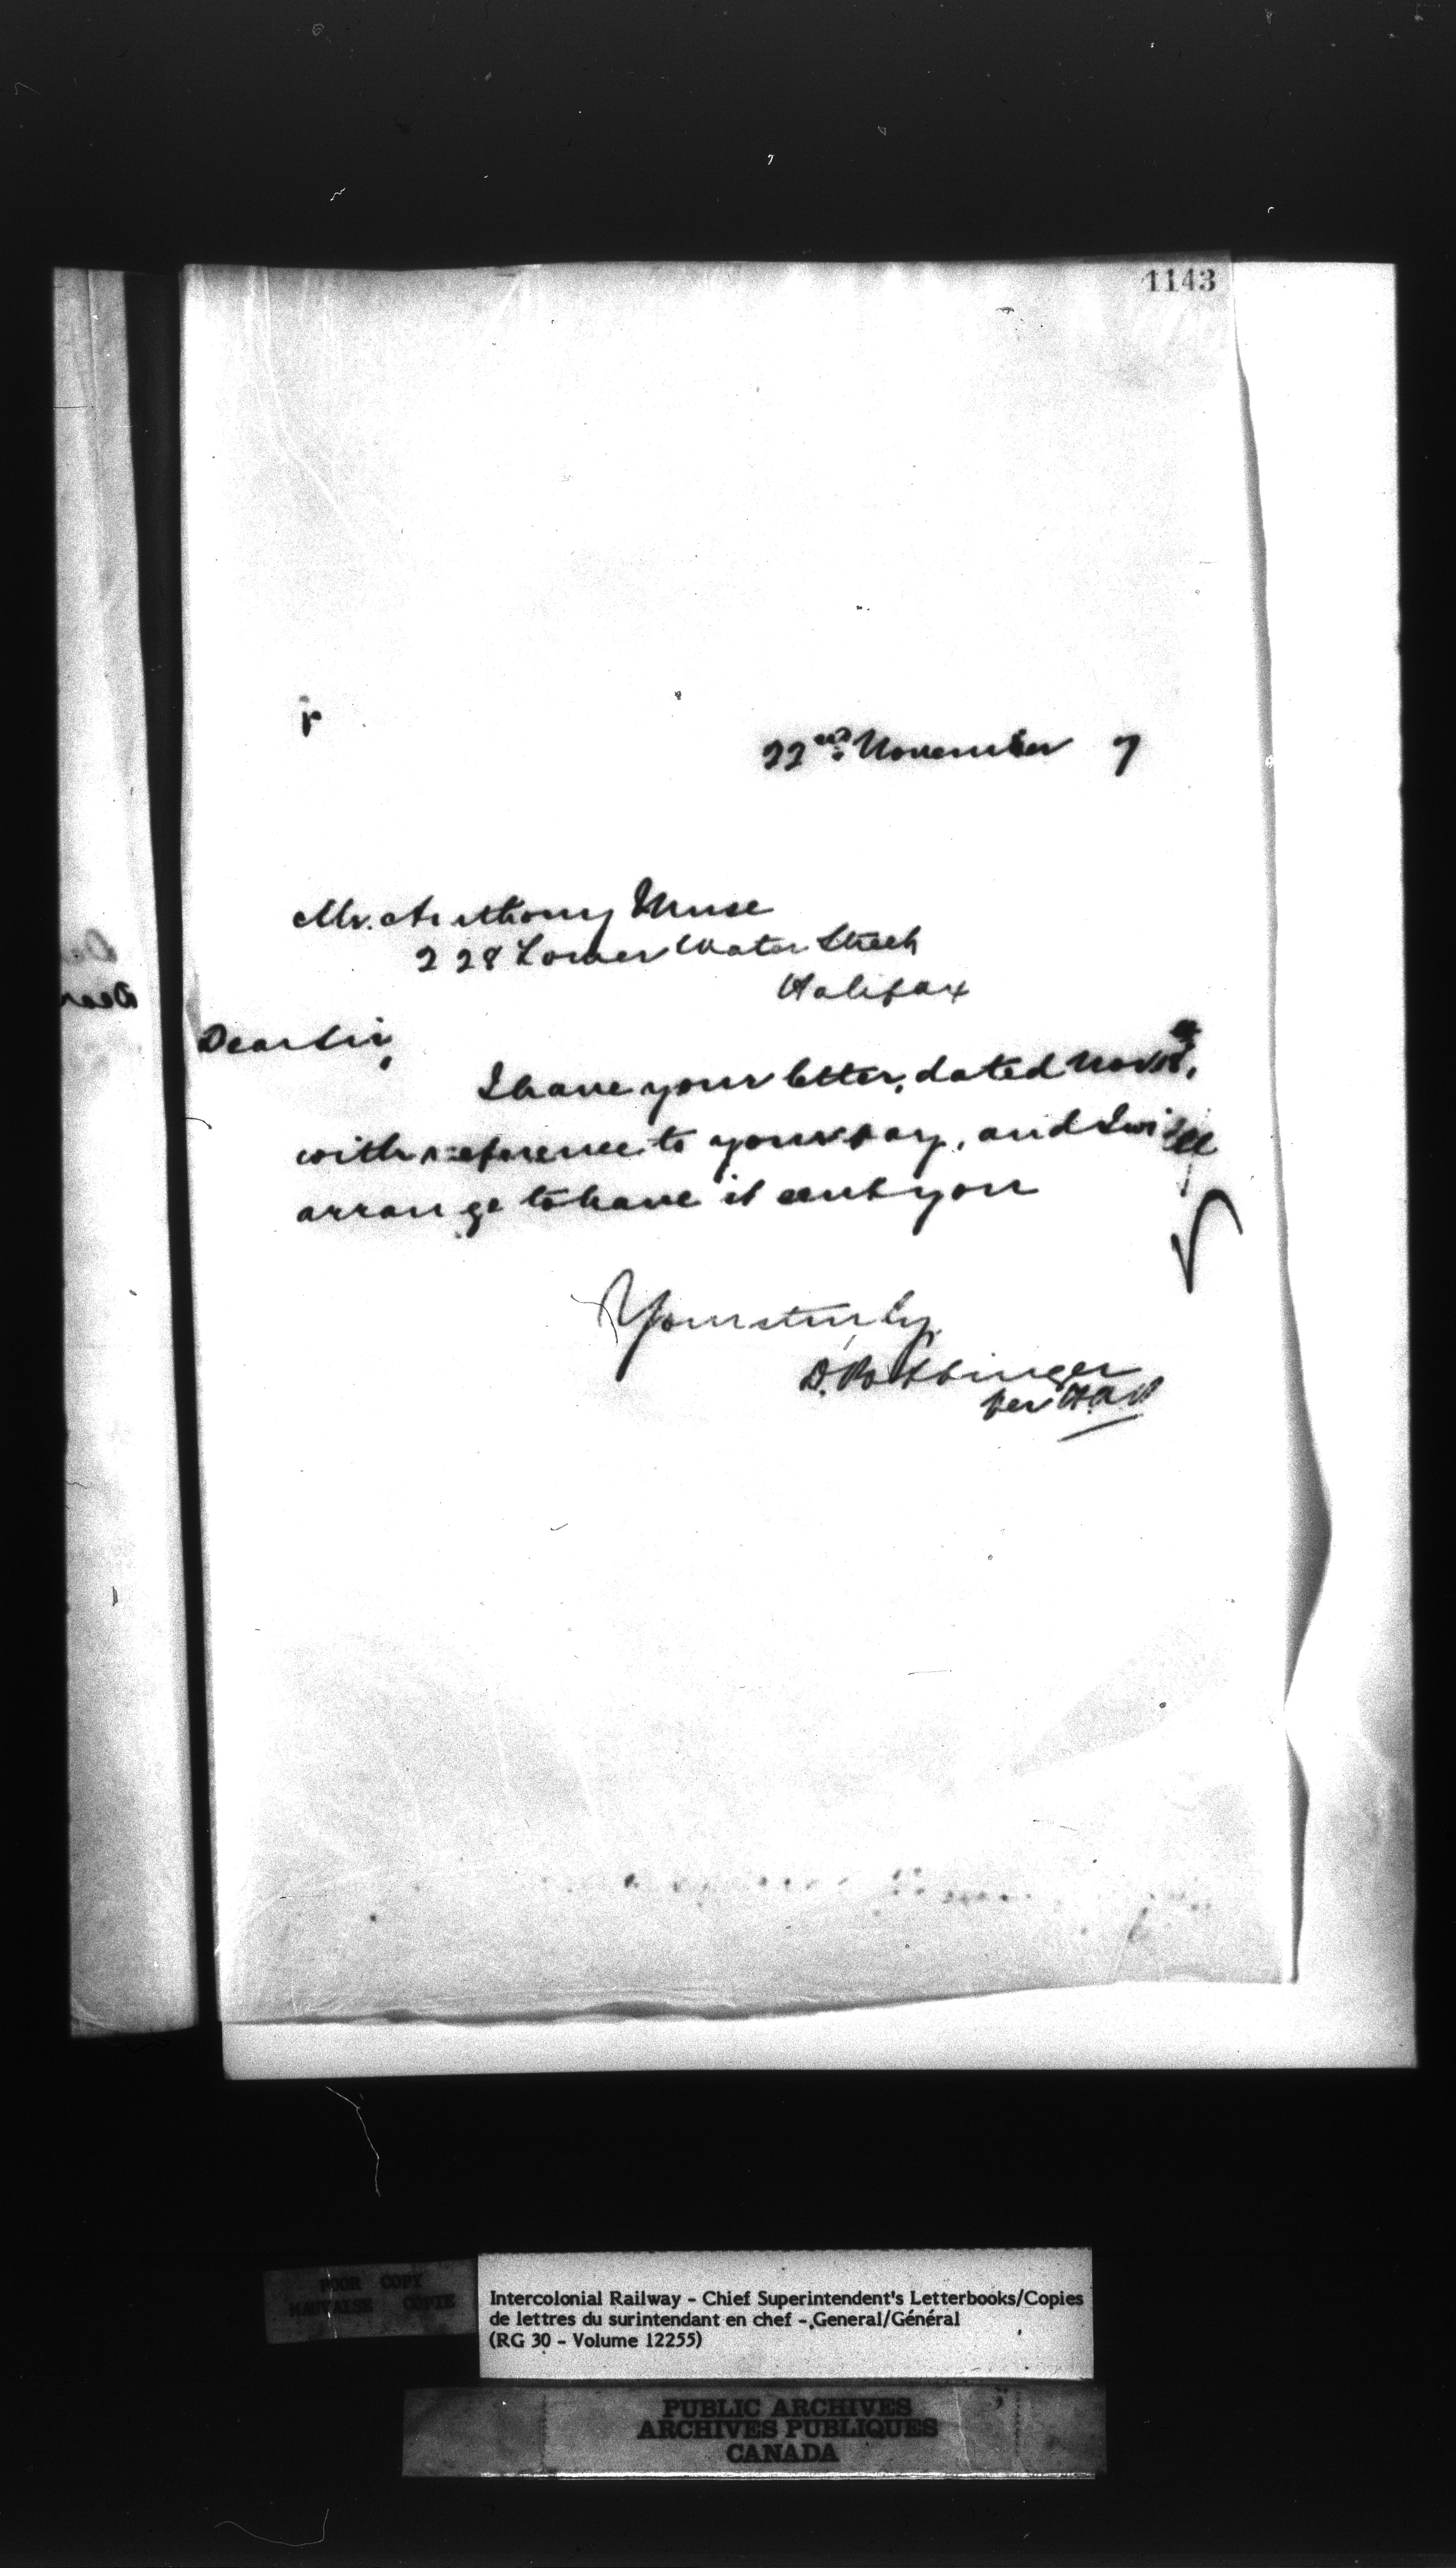 1143
r
22nd November 7
Mr. Anthony Muise
228 Lower Water Street
Halifax
Dear Sir,
I have your letter, dated Nov
with reference to your pay, and I will
arrange to have it sent you
Yours truly,
D. Pottinger
per
Dear
POOR COPY
MAUVAISE COPIE
Intercolonial Railway - Chief Superintendent's Letterbooks/Copies
de lettres du surintendant en chef - General/Général
(RG 30 - Volume 12255)
PUBLIC ARCHIVES
ARCHIVES PUBLIQUES
CANADA